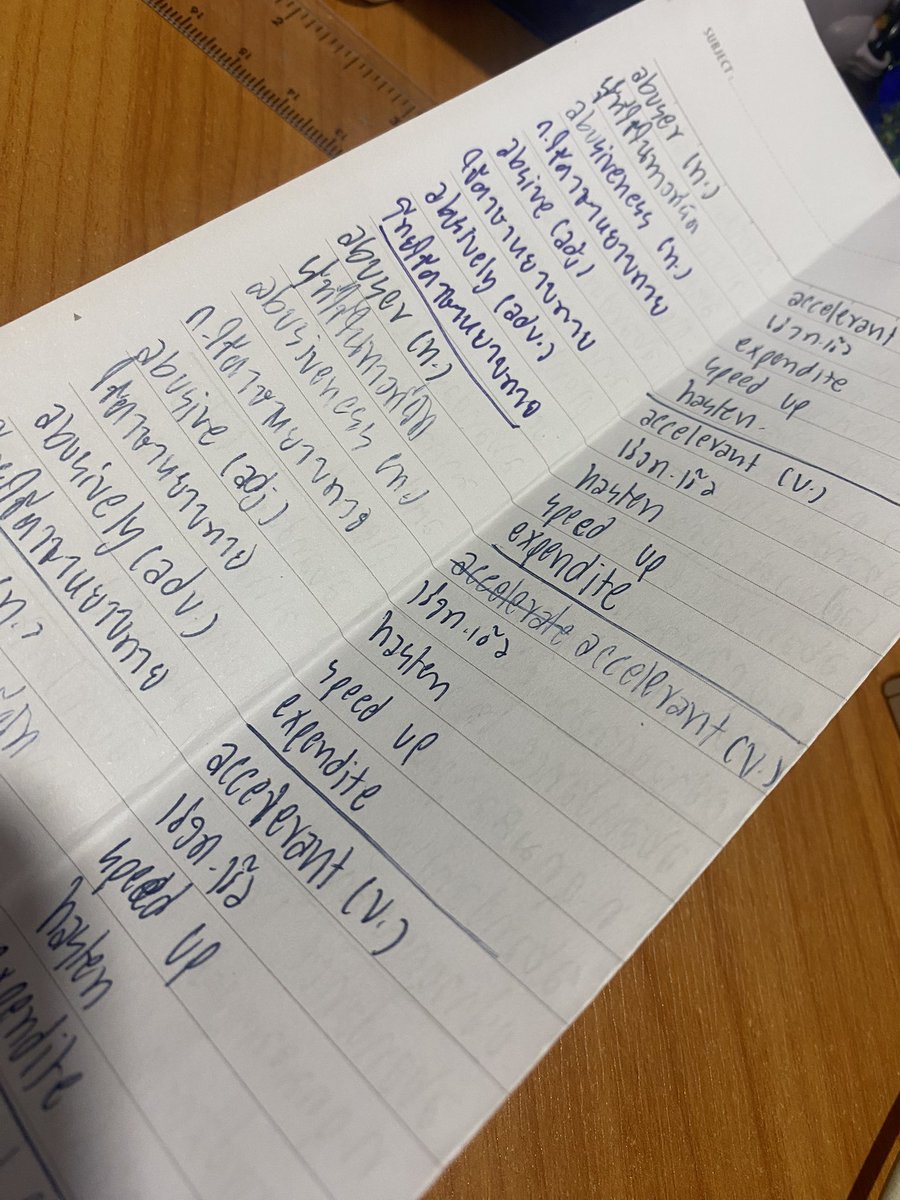 SUBJECT :
abuser (n.)
ผู้ที่ใช้ในทางที่ผิด
abusiveness (n.)
ก.ใช้คำหยาบคาย
absive (adj)
ใช้ภาษาหยาบคาย
absively (adv.)
abuser (n.)
ผู้ที่ใช้ในทางที่ผิด
abusiveness (n.)
abusive (adj)
ใช้ภาษาหยาบคาย
abusively (adv.)
accelerant
เร่งก.เร็ว
expendite
speed up
hasten.
accelerant (v.)
เร่งก.เร็ว
hasten
speed up
expendite
accelerate accelerant (v.)
เร่งก.เร็ว
hasten
speed up
expendite
accererant (v.)
เร่งก.เร็ว
speed up
hasten
expendite